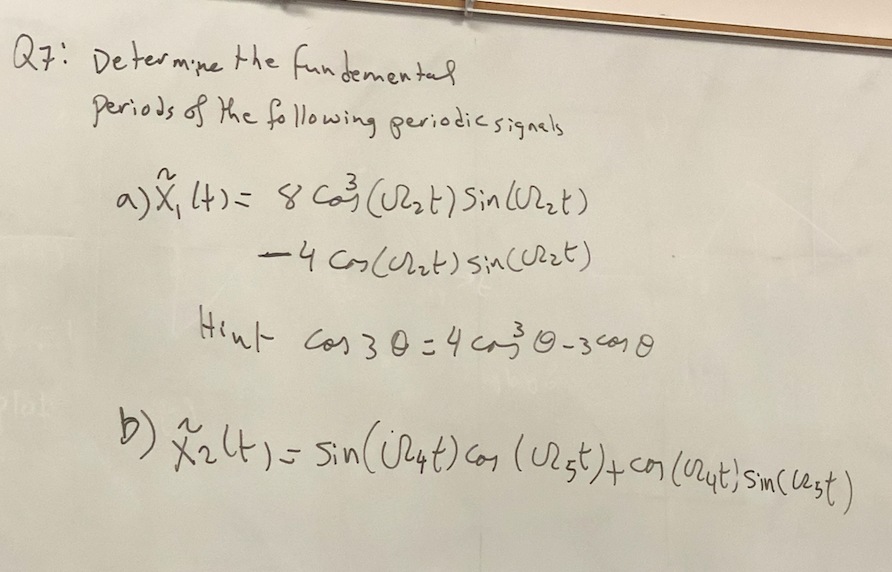 Q7: Determine the fundemental
periods of the following periodic signals
a) x̃₁(t) = 8 cos³(Ω₂t) sin(Ω₂t)
- 4 cos(Ω₂t) sin(Ω₂t)
Hint cos 3θ = 4 cos³θ - 3 cos θ
b) x̃₂(t) = sin(Ω₄t) cos(Ω₅t) + cos(Ω₄t) sin(Ω₅t)